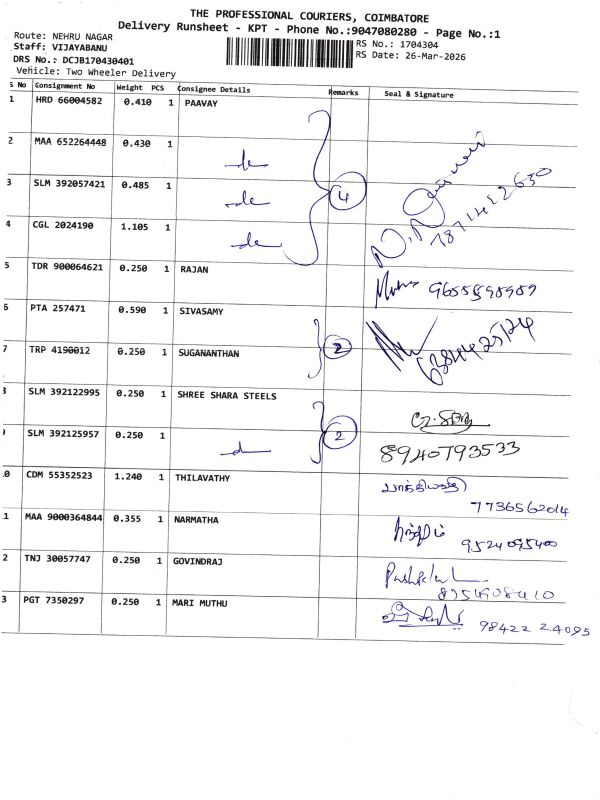 THE PROFESSIONAL COURIERS, COIMBATORE
Delivery Runsheet - KPT - Phone No.:9047080280 - Page No.:1
Route: NEHRU NAGAR
RS No.: 1704304
Staff: VIJAYABANU
RS Date: 26-Mar-2026
DRS No.: DCJB170430401
Vehicle: Two Wheeler Delivery
S No Consignment No Weight PCS Consignee Details Remarks Seal & Signature
1 HRD 66004582 0.410 1 PAAVAY
2 MAA 652264448 0.430 1 do
3 SLM 392057421 0.485 1 do 4
4 CGL 2024190 1.105 1 do 7871422630
5 TDR 900064621 0.250 1 RAJAN
6 PTA 257471 0.590 1 SIVASAMY
7 TRP 4190012 0.250 1 SUGANANTHAN 2
8 SLM 392122995 0.250 1 SHREE SHARA STEELS
9 SLM 392125957 0.250 1 do 2 8940793533
0 CDM 55352523 1.240 1 THILAVATHY 7736562014
1 MAA 9000364844 0.355 1 NARMATHA 9524095400
2 TNJ 30057747 0.250 1 GOVINDRAJ 8754908410
3 PGT 7350297 0.250 1 MARI MUTHU 98422 24095